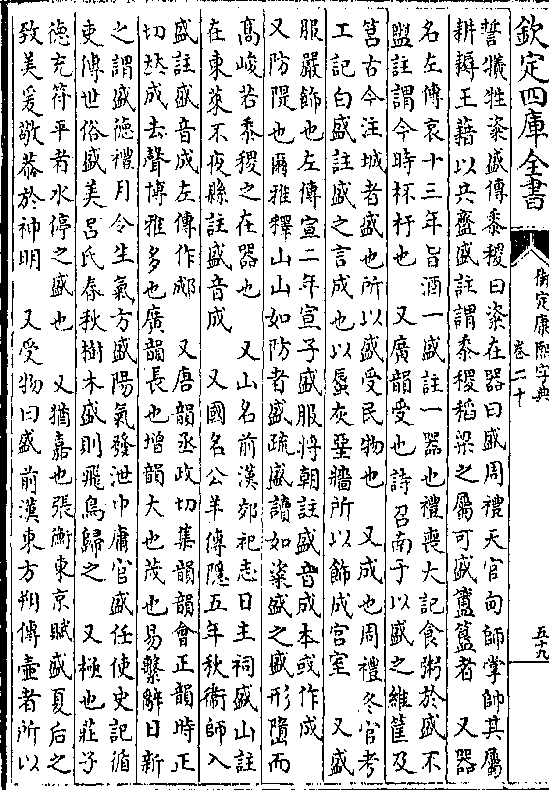 欽定四庫全書
御定康熙字典
卷二十
五十九
誓犧牲粢盛傳黍稷曰粢在器曰盛周禮天官甸師掌帥其屬
耕耨王藉以共齍盛註謂黍稷稻粱之屬可盛簠簋者　又器
名左傳哀十三年旨酒一盛註一器也禮喪大記食粥於盛不
盥註謂今時杯杅也　又廣韻受也詩召南于以盛之維筐及
筥古今注城者盛也所以盛受民物也　又成也周禮冬官考
工記白盛註盛之言成也以蜃灰堊牆所以飾成宫室　又盛
服嚴飾也左傳宣二年宣子盛服將朝註盛音成本或作成
又防隄也爾雅釋山山如防者盛疏盛讀如粢盛之盛形墮而
高峻若黍稷之在器也　又山名前漢郊祀志日主祠盛山註
在東萊不夜縣註盛音成　又國名公羊傳隱五年秋衞師入
盛註盛音成左傳作郕　又唐韻丞政切集韻韻會正韻時正
切𠀤成去聲博雅多也廣韻長也增韻大也茂也易繫辭日新
之謂盛德禮月令生氣方盛陽氣發泄中庸官盛任使史記循
吏傳世俗盛美吕氏春秋樹木盛則飛鳥歸之　又極也莊子
德充符平者水停之盛也　又猶嘉也張衡東京賦盛夏后之
致美爰敬恭於神明　又受物曰盛前漢東方朔傳壷者所以